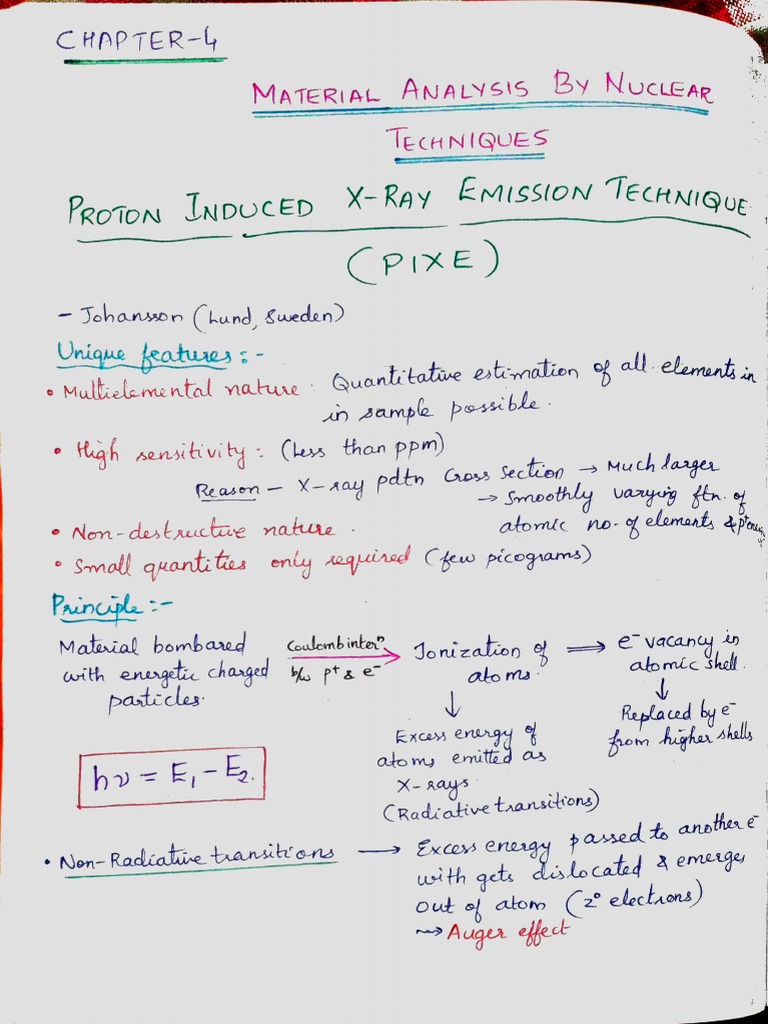 CHAPTER-4
MATERIAL ANALYSIS BY NUCLEAR
TECHNIQUES
PROTON INDUCED X-RAY EMISSION TECHNIQUE
(PIXE)
- Johansson (Lund, Sweden)
Unique features:-
• Multielemental nature. Quantitative estimation of all elements in
in sample possible.
• High sensitivity: (Less than ppm)
Reason - X-ray pdtn cross section → Much larger
→ Smoothly varying ftn. of
atomic no. of elements &
• Non-destructive nature.
• Small quantities only required (few picograms)
Principle:-
Material bombared
with energetic charged
particles.
Coulomb interⁿ
b/w p⁺ & e⁻
Ionization of
atoms.
⇒ e⁻ vacancy in
atomic shell.
↓
Replaced by e⁻
from higher shells
↓
Excess energy of
atoms emitted as
X-rays.
(Radiative transitions)
hν = E₁ - E₂.
• Non-Radiative transitions → Excess energy passed to another e⁻
with gets dislocated & emerges
out of atom (2° electrons)
⇝ Auger effect